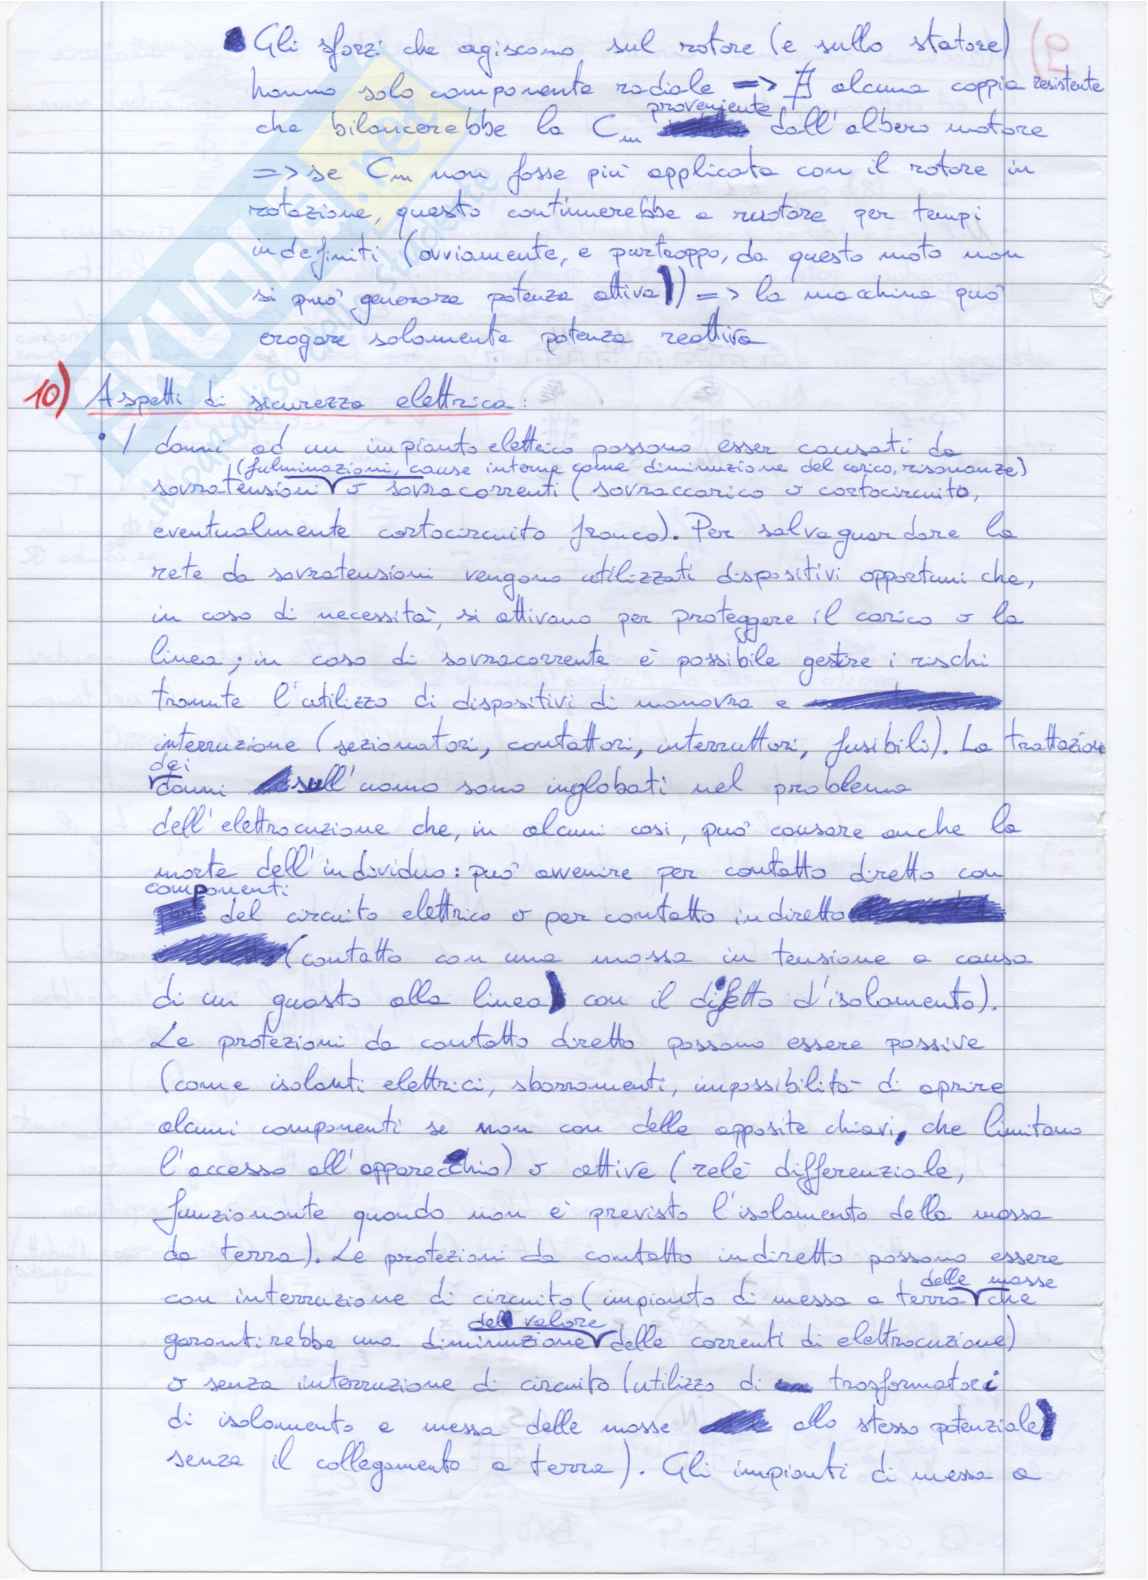 • Gli sforzi che agiscono sul rotore (e sullo statore)
hanno solo componente radiale => ∄ alcuna coppia resistente
che bilancerebbe la Cm proveniente dall'albero motore
=> se Cm non fosse più applicata con il rotore in
rotazione, questo continuerebbe a ruotare per tempi
indefiniti (ovviamente, e purtroppo, da questo moto non
si può generare potenza attiva)) => la macchina può
erogare solamente potenza reattiva
10) Aspetti di sicurezza elettrica:
• I danni ad un impianto elettrico possono esser causati da
(fulminazioni, cause interne come diminuzione del carico, risonanze)
sovratensioni o sovracorrenti (sovraccarico o cortocircuito,
eventualmente cortocircuito franco). Per salvaguardare la
rete da sovratensioni vengono utilizzati dispositivi opportuni che,
in caso di necessità, si attivano per proteggere il carico o la
linea; in caso di sovracorrente è possibile gestire i rischi
tramite l'utilizzo di dispositivi di manovra e
interruzione (sezionatori, contattori, interruttori, fusibili). La trattazione
dei
danni sull'uomo sono inglobati nel problema
dell'elettrocuzione che, in alcuni casi, può causare anche la
morte dell'individuo: può avvenire per contatto diretto con
componenti
del circuito elettrico o per contatto indiretto
(contatto con una massa in tensione a causa
di un guasto alla linea) con il difetto d'isolamento).
Le protezioni da contatto diretto possono essere passive
(come isolanti elettrici, sbarramenti, impossibilità di aprire
alcuni componenti se non con delle apposite chiavi, che limitano
l'accesso all'apparecchio) o attive (relè differenziale,
funzionante quando non è previsto l'isolamento della massa
da terra). Le protezioni da contatto indiretto possono essere
con interruzione di circuito (impianto di messa a terra delle masse che
garantirebbe una diminuzione del valore delle correnti di elettrocuzione)
o senza interruzione di circuito (utilizzo di trasformatori
di isolamento e messa delle masse allo stesso potenziale)
senza il collegamento a terra). Gli impianti di messa a
SKUOLA.net